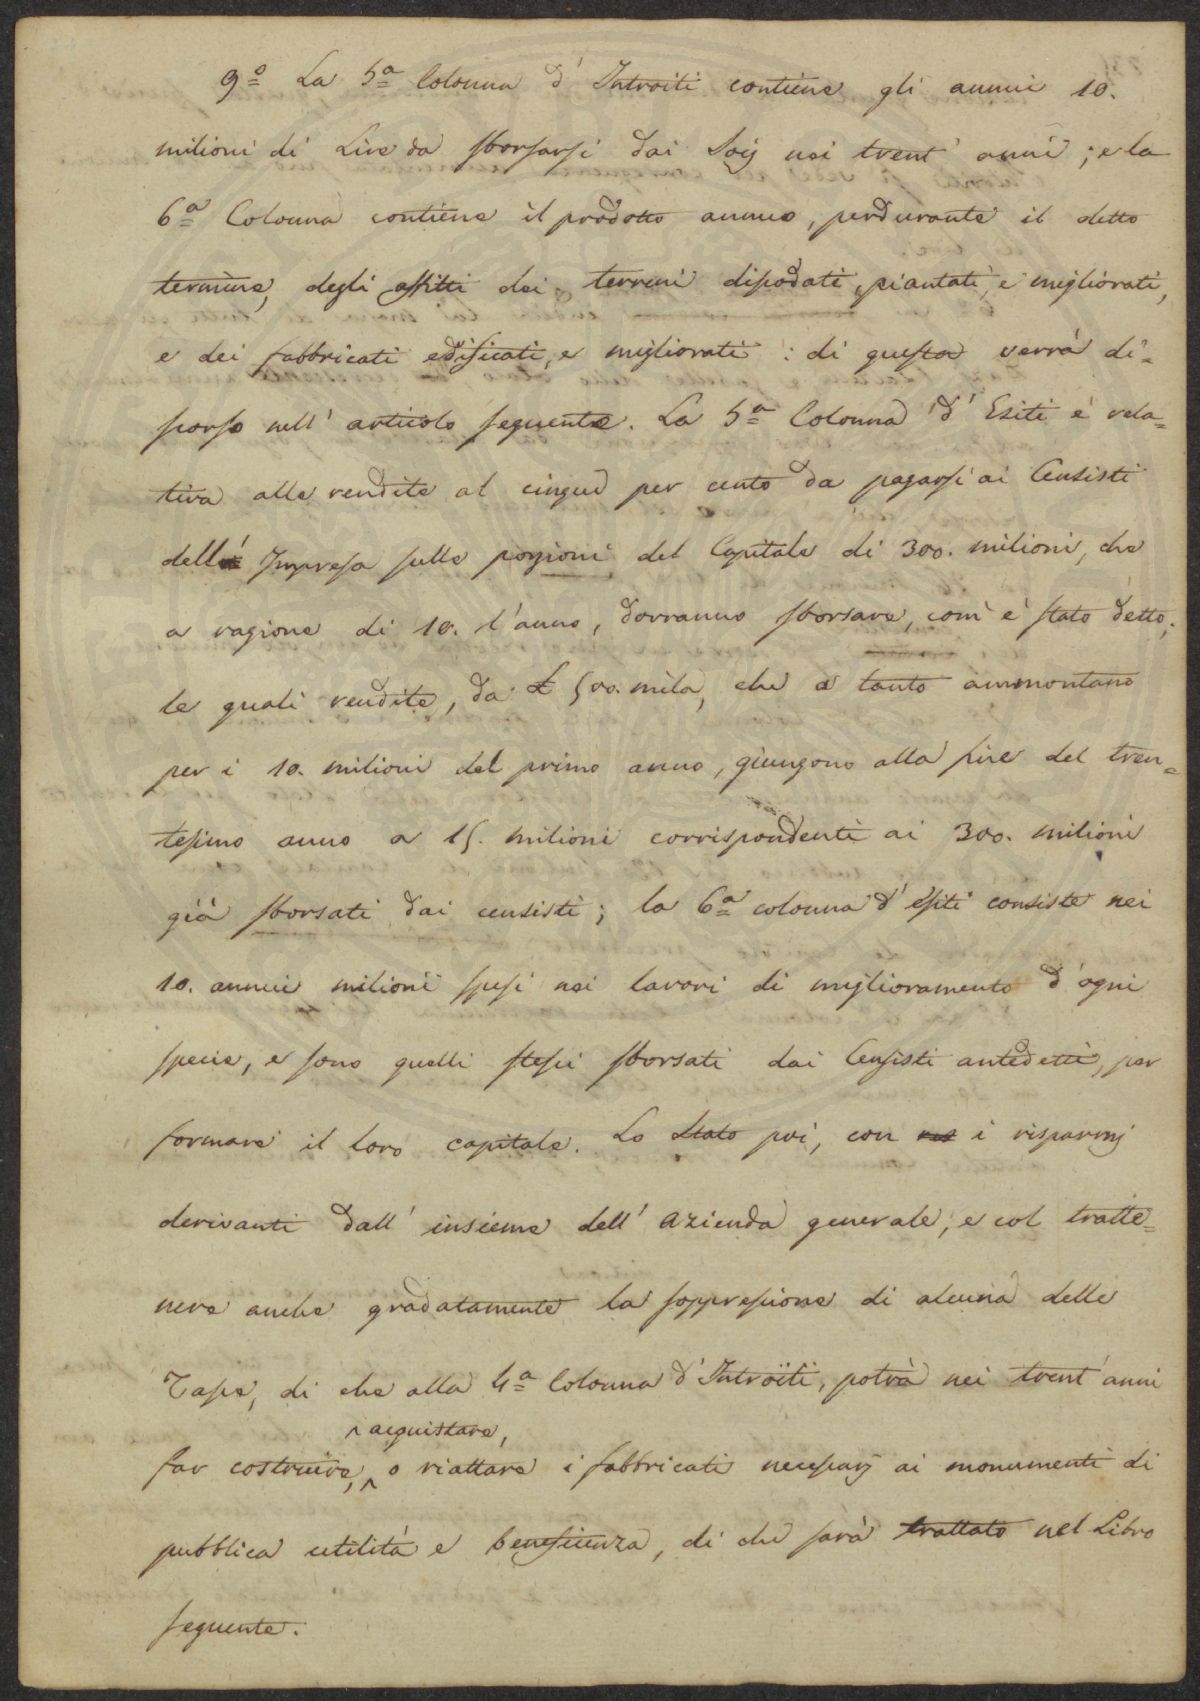 9.º La 5ª Colonna d'Introiti contiene gli annui 10.
milioni di Lire da sborsarsi dai Socj nei trent'anni; e la
6ª Colonna contiene il prodotto annuo, perdurante il detto
termine, degli affitti dei terreni dissodati, piantati, e migliorati,
e dei fabbricati edificati, e migliorati: di questo verrà di=
scorso nell'articolo seguente. La 5ª Colonna d'Esiti è rela=
tiva alle rendite al cinque per cento da pagarsi ai Censisti
dell'Impresa sulle porzioni del Capitale di 300. milioni, che
a ragione di 10. l'anno, dovranno sborsare, com'è stato detto;
le quali rendite, da £ 500. mila, che a tanto ammontano
per i 10. milioni del primo anno, giungono alla fine del tren=
tesimo anno a 15. milioni corrispondenti ai 300. milioni
già sborsati dai censisti; la 6ª colonna d'esiti consiste nei
10. annui milioni spesi nei lavori di miglioramento d'ogni
specie, e sono quelli stessi sborsati dai Censisti antedetti, per
formare il loro capitale. Lo Stato poi, con i risparmj
derivanti dall'insieme dell'azienda generale, e col tratte=
nere anche gradatamente la soppressione di alcuna delle
Tasse, di che alla 4ª Colonna d'Introiti, potrà nei trent'anni
acquistare,
far costruire, o riattare i fabbricati necessarj ai monumenti di
pubblica utilità e beneficenza, di che sarà trattato nel Libro
seguente.